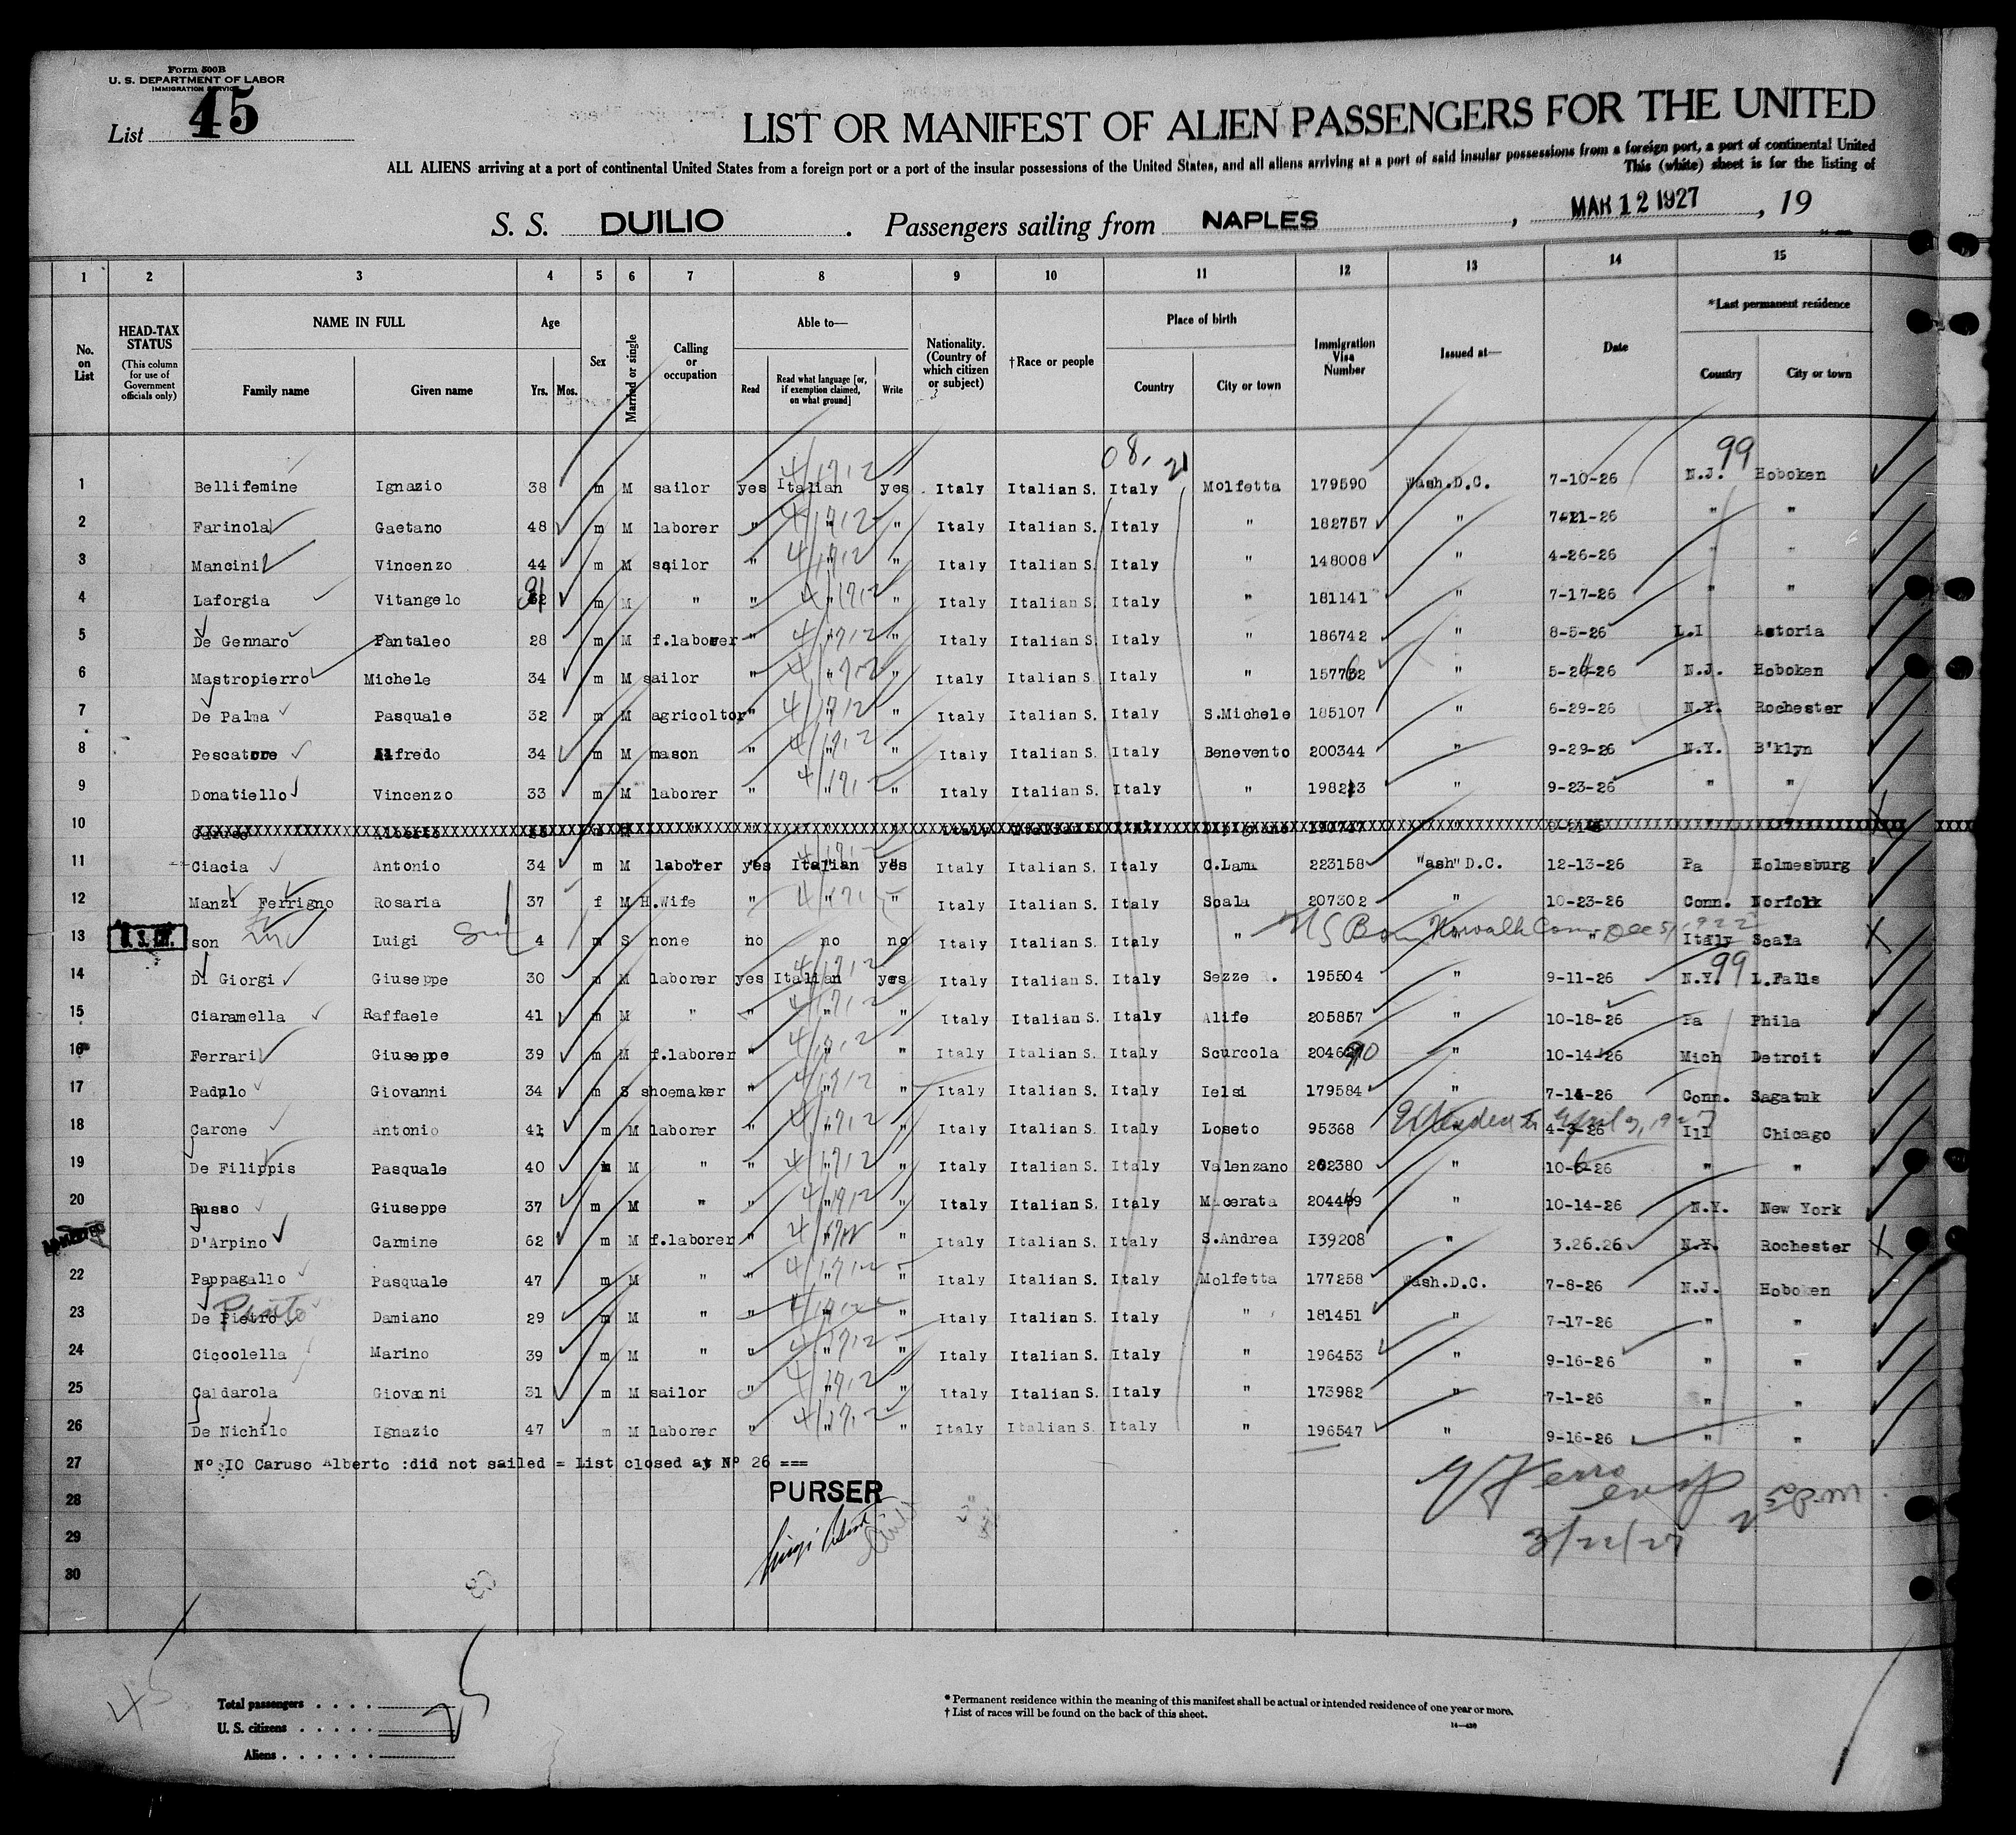 Form 500B
U. S. DEPARTMENT OF LABOR
IMMIGRATION SERVICE
List 45
LIST OR MANIFEST OF ALIEN PASSENGERS FOR THE UNITED
ALL ALIENS arriving at a port of continental United States from a foreign port or a port of the insular possessions of the United States, and all aliens arriving at a port of said insular possessions from a foreign port, a port of continental United
This (white) sheet is for the listing of
S. S. DUILIO . Passengers sailing from NAPLES , MAR 12 1927 , 19
1 2 3 4 5 6 7 8 9 10 11 12 13 14 15
No. on List
HEAD-TAX STATUS (This column for use of Government officials only)
NAME IN FULL Family name Given name
Age Yrs. Mos.
Sex
Married or single
Calling or occupation
Able to— Read Read what language [or, if exemption claimed, on what ground] Write
Nationality. (Country of which citizen or subject)
†Race or people
Place of birth Country City or town
Immigration Visa Number
Issued at—
Date
*Last permanent residence Country City or town
99
1 Bellifemine Ignazio 38 m M sailor yes Italian yes Italy Italian S. Italy Molfetta 179590 Wash.D.C. 7-10-26 N.J. Hoboken
2 Farinola Gaetano 48 m M laborer " " " Italy Italian S. Italy " 182757 " 7-21-26 " "
3 Mancini Vincenzo 44 m M sailor " " " Italy Italian S. Italy " 148008 " 4-26-26 " "
4 Laforgia Vitangelo m M " " " " Italy Italian S. Italy " 181141 " 7-17-26 " "
5 De Gennaro Pantaleo 28 m M f.laborer " " " Italy Italian S. Italy " 186742 " 8-5-26 L.I Astoria
6 Mastropierro Michele 34 m M sailor " " " Italy Italian S. Italy " " N.J. Hoboken
7 De Palma Pasquale 32 m M agricoltor " " " Italy Italian S. Italy S.Michele 185107 " 6-29-26 N.Y. Rochester
8 Pescatore Alfredo 34 m M mason " " " Italy Italian S. Italy Benevento 200344 " 9-29-26 N.Y. B'klyn
9 Donatiello Vincenzo 33 m M laborer " " " Italy Italian S. Italy " " 9-23-26 " "
10 Caruso Alberto
11 Ciacia Antonio 34 m M laborer yes Italian yes Italy Italian S. Italy C.Lama 223158 "ash" D.C. 12-13-26 Pa Holmesburg
12 Manzi Ferrigno Rosaria 37 f M H.Wife " " " Italy Italian S. Italy Scala 207302 " 10-23-26 Conn. Norfolk
13 son Luigi 4 m S none no no no Italy Italian S. Italy " US Born Norwalk Conn Dec 5, 1922 Italy Scala
99
14 Di Giorgi Giuseppe 30 m M laborer yes Italian yes Italy Italian S. Italy Sezze 195504 " 9-11-26 N.Y. L.Falls
15 Ciaramella Raffaele 41 m M " " " " Italy Italian S. Italy Alife 205857 " 10-18-26 Pa Phila
16 Ferrari Giuseppe 39 m M f.laborer " " " Italy Italian S. Italy Scurcola " 10-14-26 Mich Detroit
17 Padulo Giovanni 34 m S shoemaker " " " Italy Italian S. Italy Ielsi 179584 " 7-14-26 Conn. Sagatuk
18 Carone Antonio 41 m M laborer " " " Italy Italian S. Italy Loseto 95368 Extended to April 3, 1927 4-3-26 Ill Chicago
19 De Filippis Pasquale 40 m M " " " " Italy Italian S. Italy Valenzano 202380 " 10-6-26 " "
20 Russo Giuseppe 37 m M " " " " Italy Italian S. Italy Macerata " 10-14-26 N.Y. New York
ADMITTED D'Arpino Carmine 62 m M f.laborer " " " Italy Italian S. Italy S.Andrea I39208 " 3.26.26 N.Y. Rochester
22 Pappagallo Pasquale 47 m M " " " " Italy Italian S. Italy Molfetta 177258 Wash.D.C. 7-8-26 N.J. Hoboken
23 De Pietro Damiano 29 m M " " " " Italy Italian S. Italy " 181451 " 7-17-26 " "
24 Ciccolella Marino 39 m M " " " " Italy Italian S. Italy " 196453 " 9-16-26 " "
25 Caldarola Giovanni 31 m M sailor " " " Italy Italian S. Italy " 173982 " 7-1-26 " "
26 De Nichilo Ignazio 47 m M laborer " " " Italy Italian S. Italy " 196547 " 9-16-26 " "
27 Nº IO Caruso Alberto :did not sailed = List closed at Nº 26 ===
28 PURSER
29 3/22/27
30
45
Total passengers . . . . 25
U. S. citizens . . . . .
Aliens . . . . . .
* Permanent residence within the meaning of this manifest shall be actual or intended residence of one year or more.
† List of races will be found on the back of this sheet.